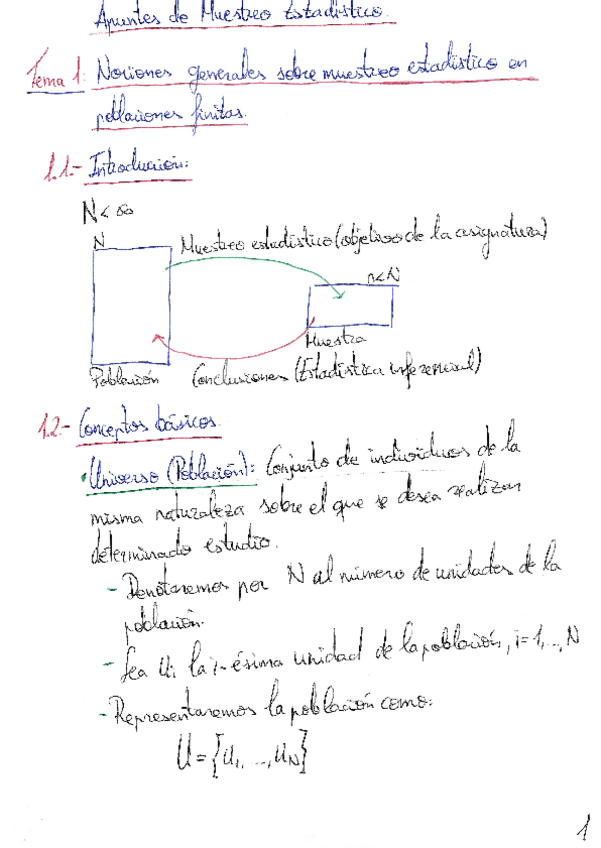 Apuntes de Muestreo Estadístico.
Tema 1: Nociones generales sobre muestreo estadístico en
poblaciones finitas.
1.1.- Introducción:
N < ∞
N
Muestreo estadístico (objetivo de la asignatura)
n<N
Muestra
Población
Conclusiones (Estadística inferencial)
1.2.- Conceptos básicos.
• Universo (Población): Conjunto de individuos de la
misma naturaleza sobre el que se desea realizar
determinado estudio.
- Denotaremos por N al número de unidades de la
población.
- Sea Ui la i-ésima unidad de la población, i=1,...,N
- Representaremos la población como:
U = {U1, ..., UN}
1